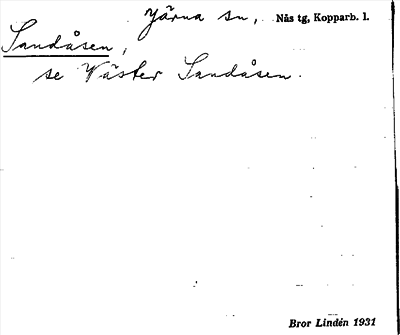 Järna sn, Näs tg, Kopparb. l.
Sandåsen,
se Väster Sandåsen.
Bror Lindén 1931